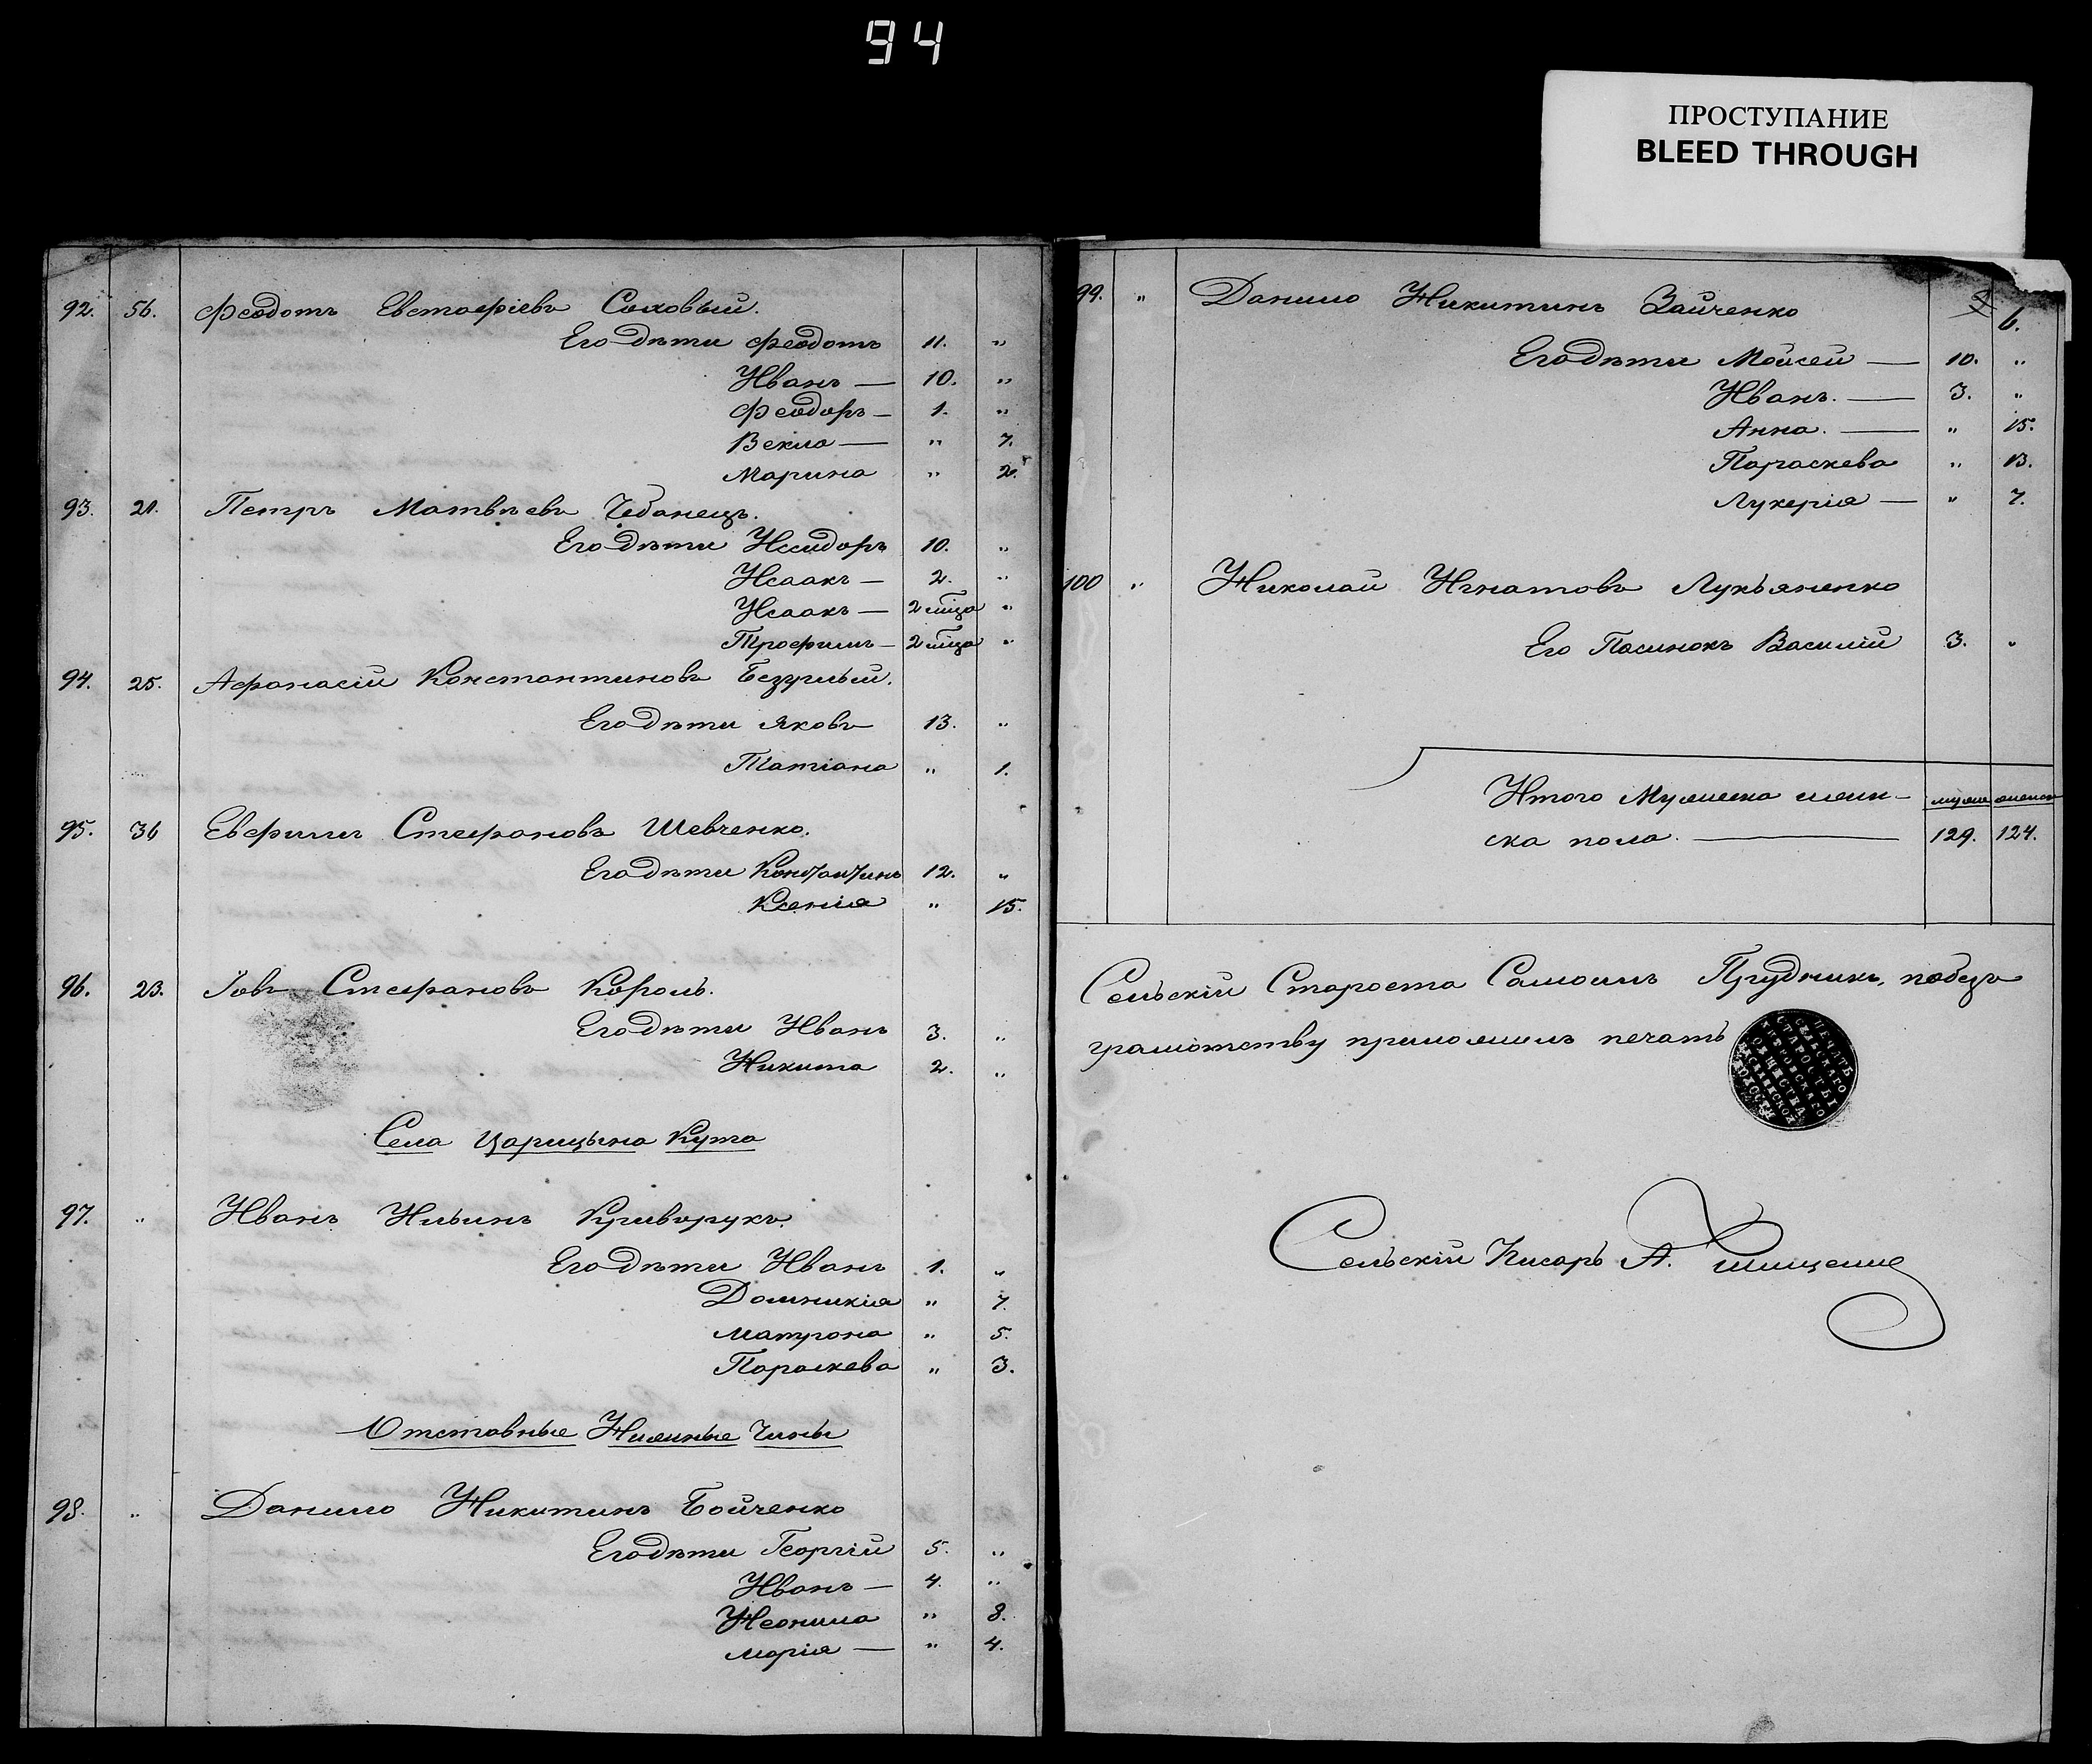 94
ПРОСТУПАНИЕ
BLEED THROUGH
92. 56. Феодотъ Евстафіевъ Соховый.
Его дѣти Феодотъ 11. "
Иванъ — 10. "
Феодоръ — 1. "
Векла — " 7.
Марина " 2.
93. 21. Петръ Матвѣевъ Чебанецъ.
Его дѣти Исидоръ 10. "
Исаакъ — 2. "
Исаакъ — 2 мѣца "
Трофимъ — 2 мѣца "
94. 25. Афанасій Константиновъ Безуглый.
Его дѣти Яковъ 13. "
Татіана " 1.
95. 36 Евфимъ Стефановъ Шевченко.
Его дѣти Константинъ 12. "
Ксенія " 15.
96. 23. Іовъ Стефановъ Король.
Его дѣти Иванъ 3. "
Никита 2. "
Села Царицына Кута
97. " Иванъ Ильинъ Криворукъ.
Его дѣти Иванъ 1. "
Домникія " 7.
Матрона " 5.
Параскева " 3.
Отставные Нижные Чины
98. " Данило Никитинъ Бойченко
Его дѣти Георгій 5. "
Иванъ — 4. "
Неонила " 8.
Марія — " 4.
99. " Данило Никитинъ Зайченко
6.
Его дѣти Мойсей — 10. "
Иванъ. — 3. "
Анна. — " 15.
Параскева " 13.
Лукерія — " 7.
100 " Николай Игнатовъ Лукьяненко
Его Пасинокъ Василій 3. "
Итого Мужеска женс-
ска пола. — 129. 124.
Сельскій Староста Самоилъ Прудникъ, по безъ
грамотству приложилъ печать
ПЕЧАТЬ
СЕЛЬСКАГО
СТАРОСТЫ
ОБЩЕСТВА
Сельскій Писарь А.